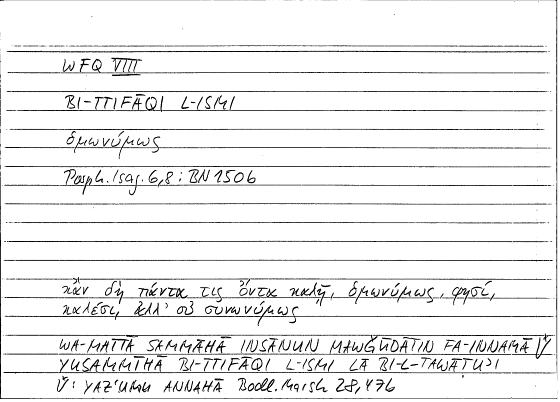 WFQ VIII
BI-TTIFĀQI L-ISMI
ὁμωνύμως
Porph. Isag. 6,8 : BN 1506
κἂν δὴ πάντα τις ὄντα καλῇ, ὁμωνύμως, φησί,
καλέσει, ἀλλ' οὐ συνωνύμως
WA-MATTĀ SAMMĀHĀ INSĀNUN MAWǦŪDĀTIN FA-INNAMĀ V̌
YUSAMMĪHĀ BI-TTIFĀQI L-ISMI LĀ BI-L-TAWĀṬUʾI
V̌: YAZʿUMU ANNAHĀ Bodl. Marsh 28,476